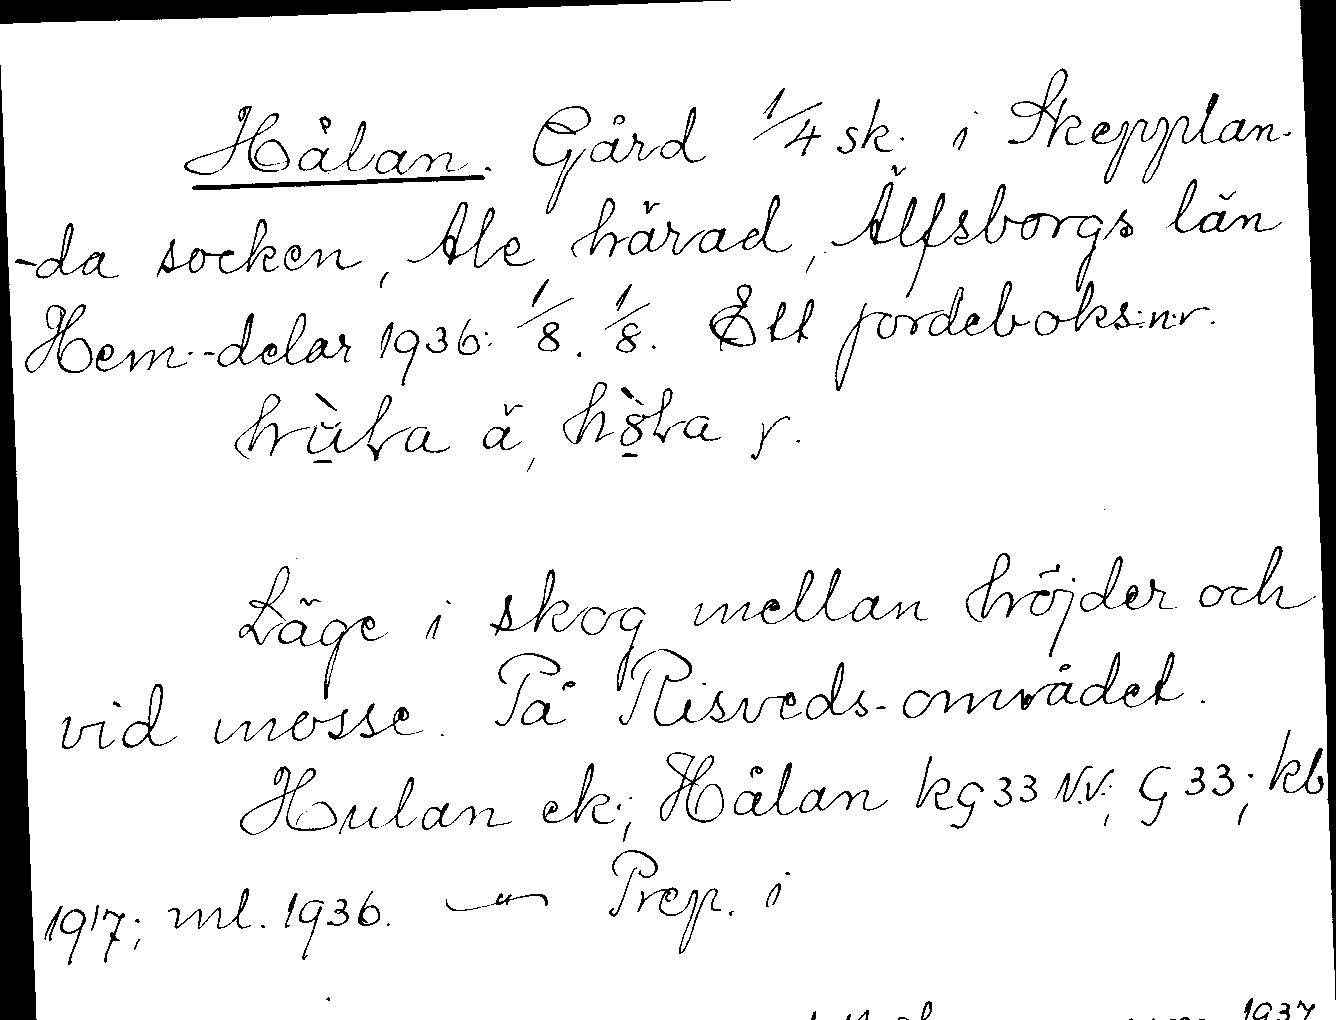 Hålan. Gård 1/4 sk. i Skepplan-
-da socken, Ale härad, Älfsborgs län
Hem.-delar 1936: 1/8. 1/8. Ett jordeboks:n:r.
ä, y.
Läge i skog mellan höjder och
vid mosse. På Risveds-området.
Hulan ek.; Hålan kg 33 N.V.; G 33; kb
1917; ml. 1936. — Prep. i
1937